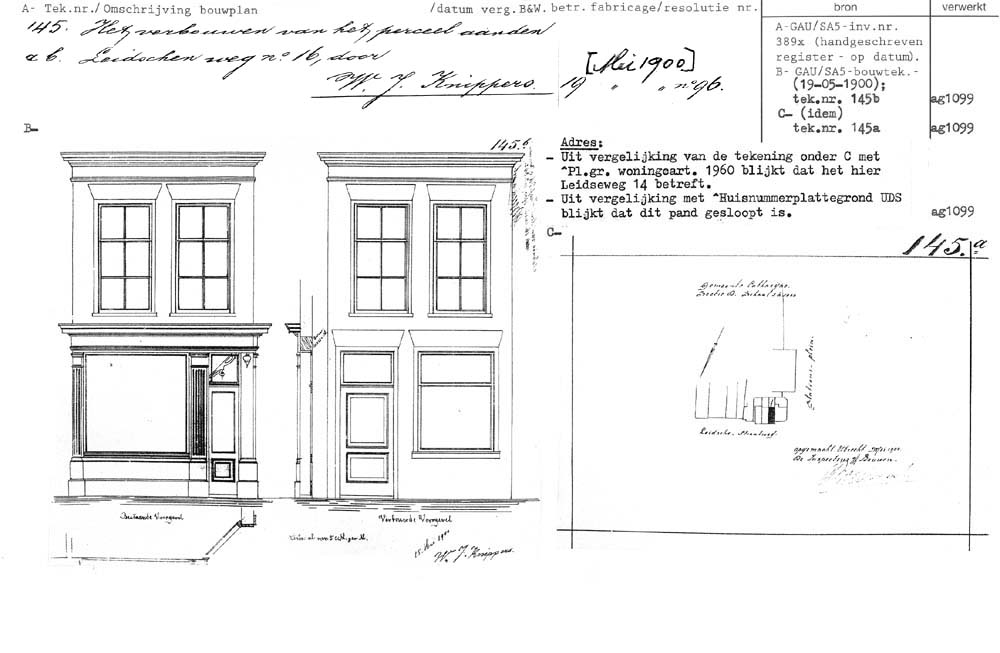 A- Tek.nr./Omschrijving bouwplan /datum verg.B&W. betr. fabricage/resolutie nr. bron verwerkt
145. Het verbouwen van het perceel aan den
a b. Leidschen weg no. 16, door
W. J. Knippers.
[Mei 1900]
19 " " no 96.
A-GAU/SA5-inv.nr.
389x (handgeschreven
register - op datum).
B- GAU/SA5-bouwtek.-
(19-05-1900);
tek.nr. 145b ag1099
C- (idem)
tek.nr. 145a ag1099
B-
145.b
Adres:
- Uit vergelijking van de tekening onder C met
^Pl.gr. woningcart. 1960 blijkt dat het hier
Leidseweg 14 betreft.
- Uit vergelijking met ^Huisnummerplattegrond UDS
blijkt dat dit pand gesloopt is. ag1099
C-
145.a
Gemeente Catharyne.
Sectie B.
Stations-plein.
Leidsche-
Utrecht
De Inspecteur
Bestaande Voorgevel
Verbouwde Voorgevel
W. J. Knippers.